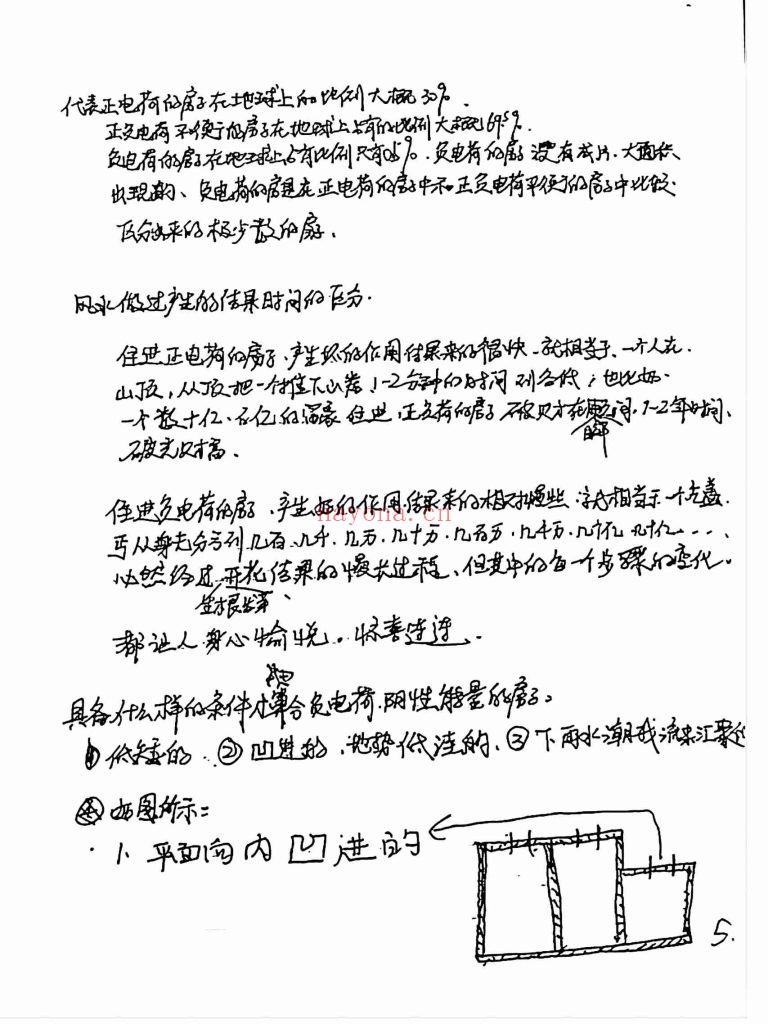 代表正电荷的房子在地球上的比例大概30%.
正负电荷平衡的房子在地球上占有的比例大概69.5%.
负电荷的房子在地球上占有比例只有0.5%.负电荷的房子没有成片.大面积
出现的、负电荷的房是在正电荷的房子中和正负电荷平衡的房子中比较
区分出来的极少数的房.
风水做过产生的结果时间的区分.
住进正电荷的房子.产生坏的作用结果来的很快.就相当于.一个人在.
山顶,从顶把一个推下山崖,1-2分钟的时间到谷底;也比如.
一个数十亿.百亿的富豪住进.正负荷的房子破财才在间,1-2年时间、
瞬
破完财富.
住进负电荷的房子.产生好的作用结果来的相对慢些.就相当于一个乞丐
丐从身无分亏到几百.几千.几万.几十万.几百万.几千万.几个亿几十亿...、
必然经过开花结果的慢长过程、但其中的每一个步骤的变化.
生根发芽、
都让人身心愉悦。惊喜连连.
nayona.cn
具备什么样的条件才算合负电荷.阴性能量的房子。
①低矮的.②凹进的.地势低洼的.③下雨水潮我流来汇聚
④如图所示:
1、平面向内凹进的
5.